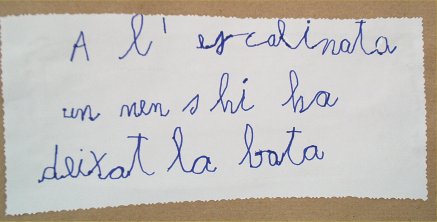 A l'escalinata
un nen s hi ha
deixat la bata